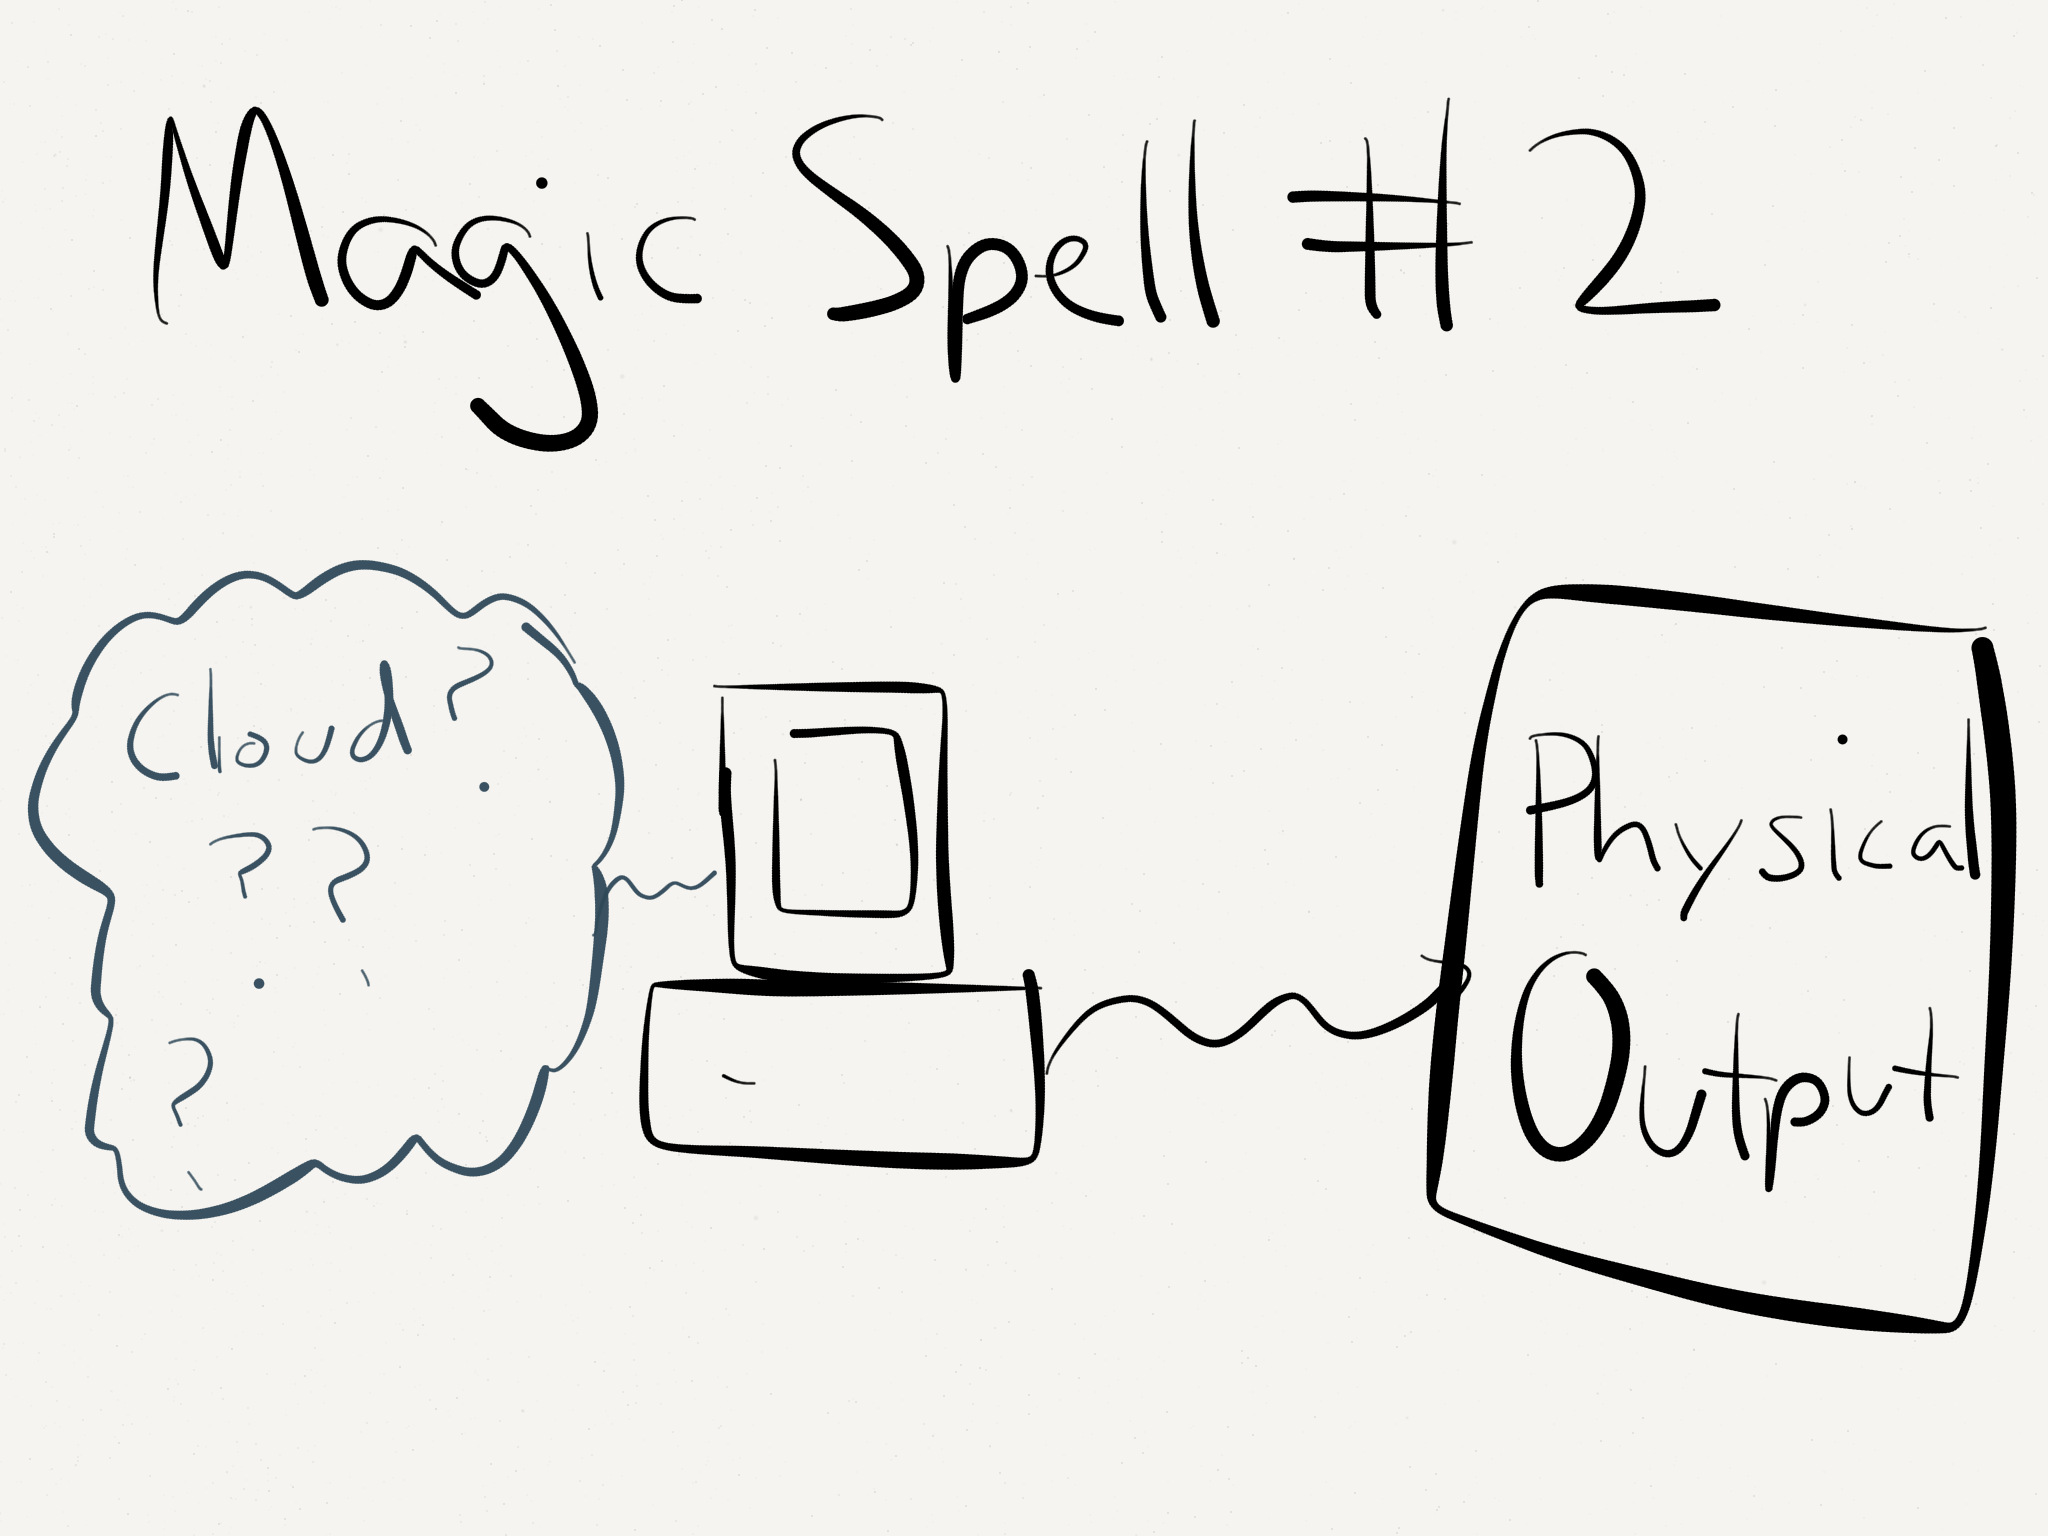 Magic Spell #2
Cloud?
??
?
Physical
Output